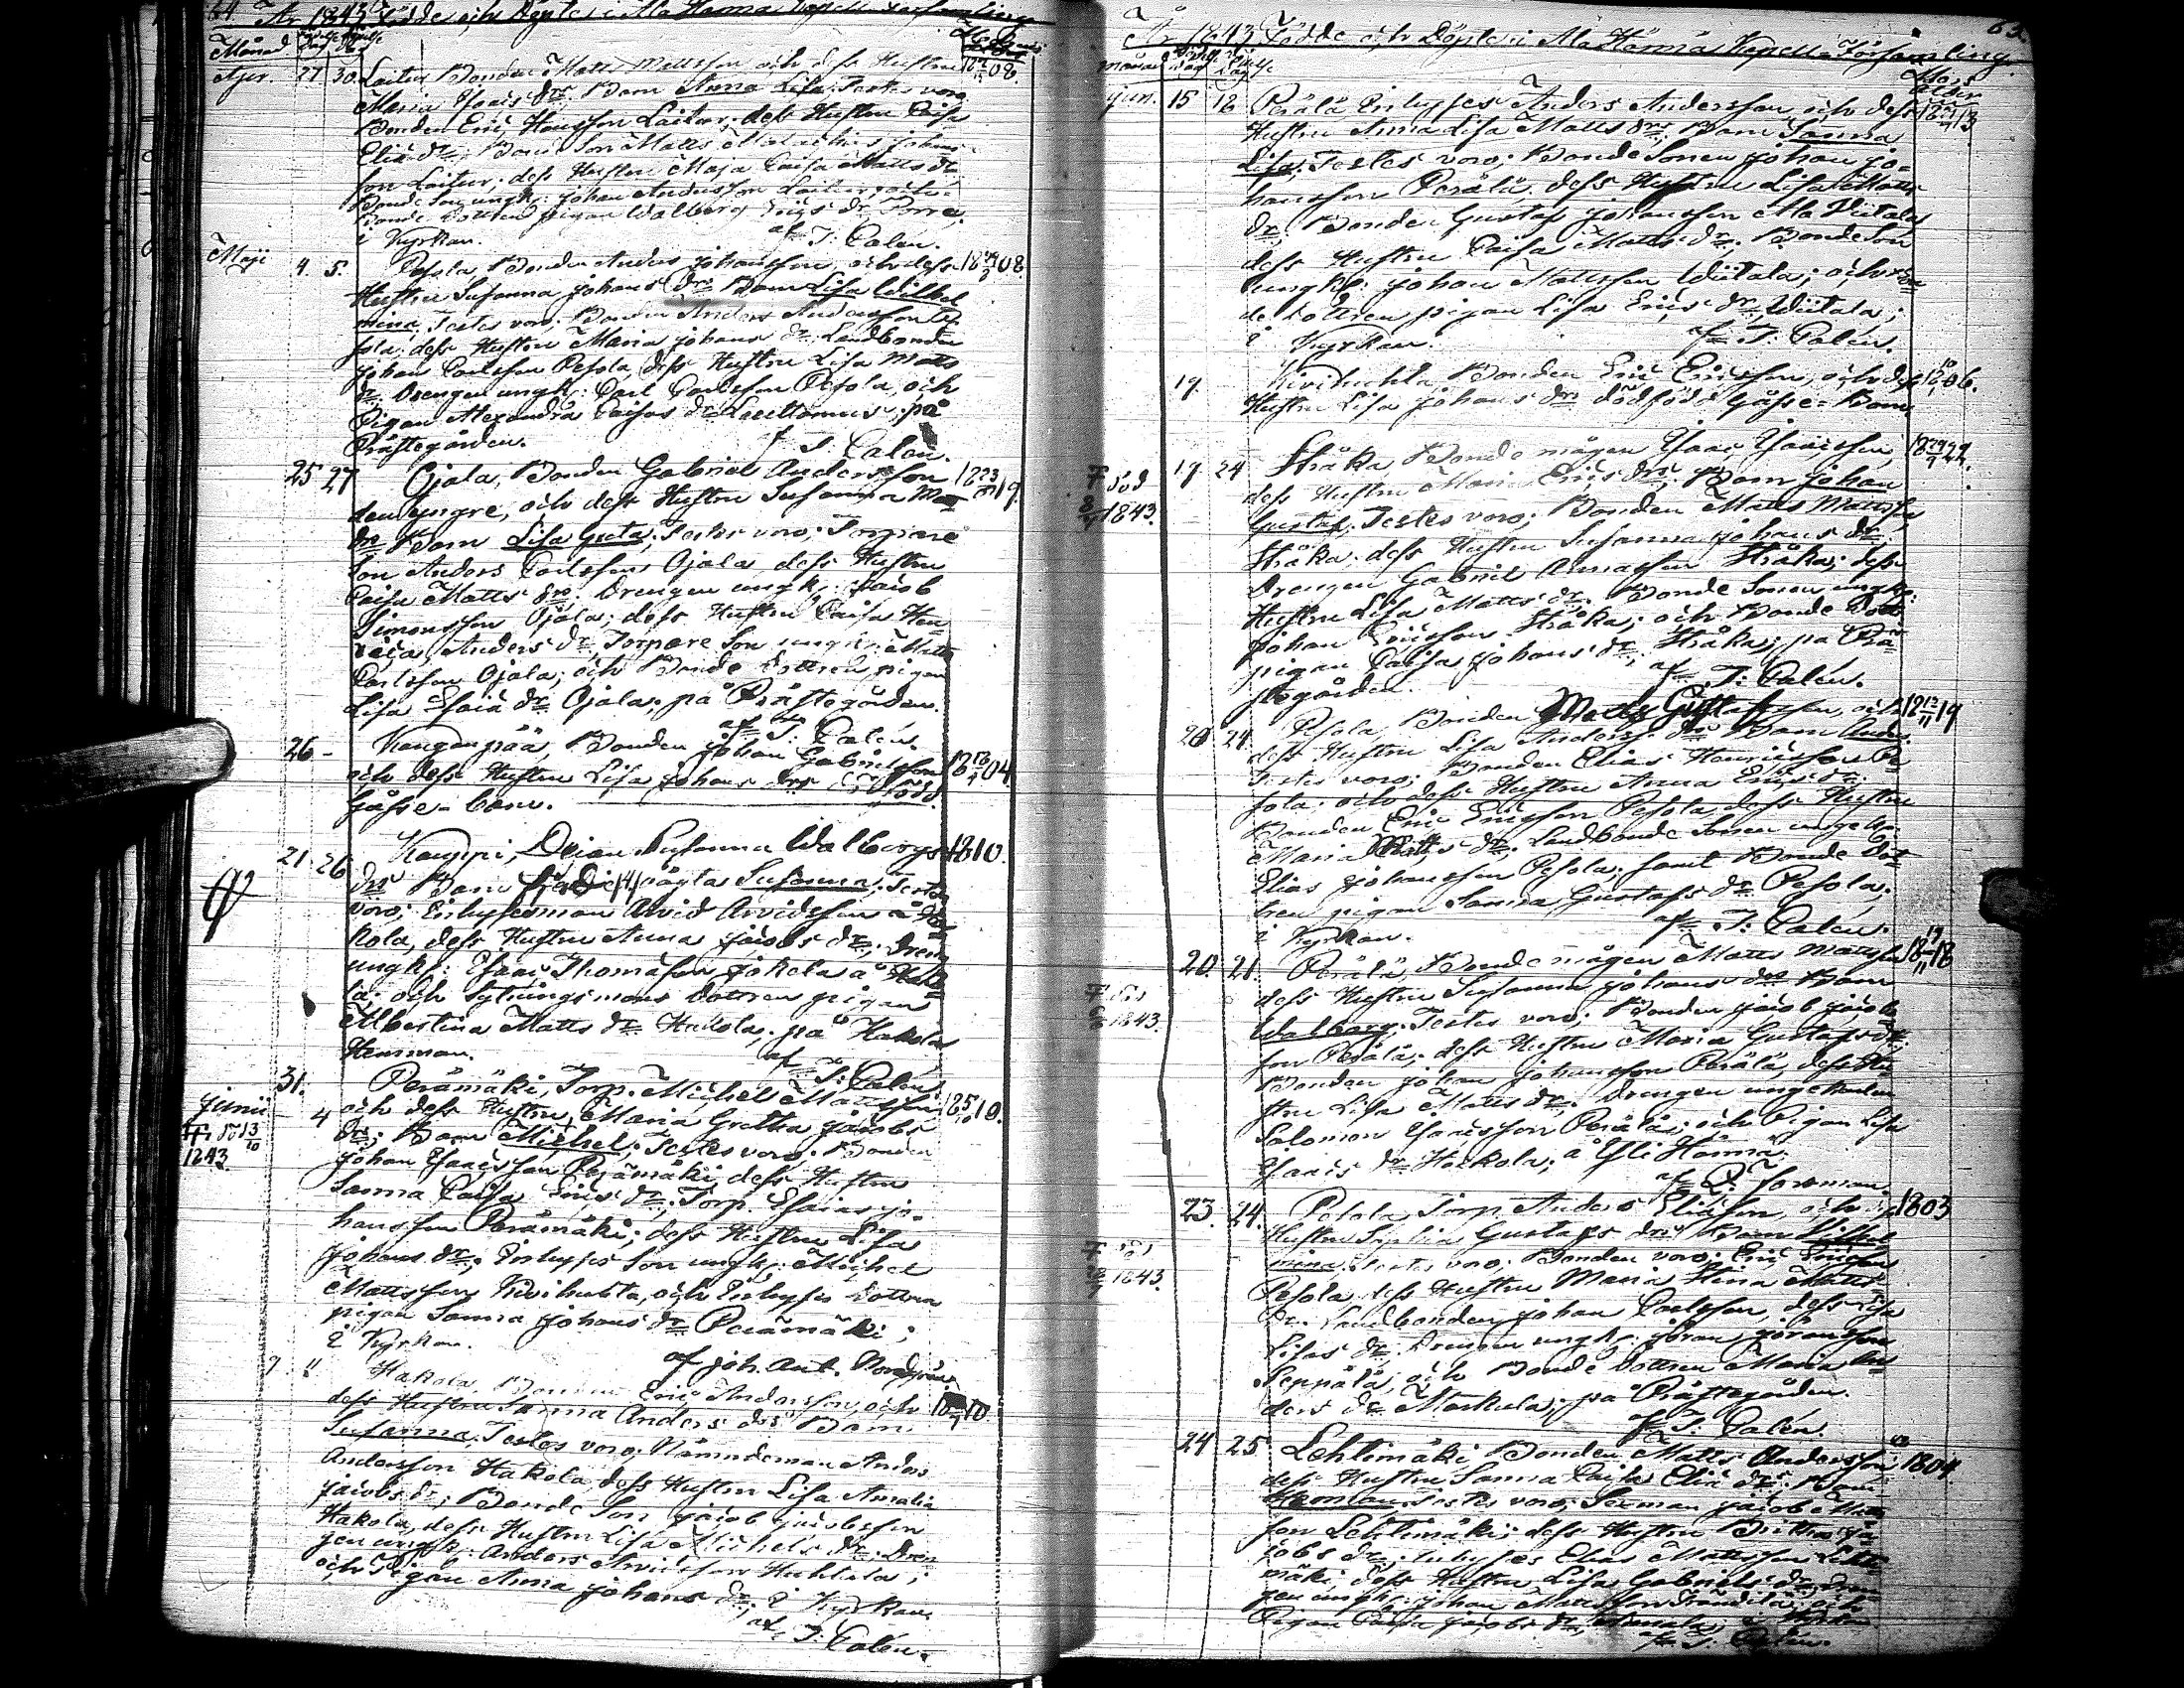 År 1843 Födde och Döpte i Ala Härmä Capell Församling
Månad
Apr. 27 30. Laitur Bonden Matts Mattsson och dess Hustru 18 08.
Maria Isaacs dr Barn Anna Lisa; Testes voro
Bonden Eric Hansson Laitur; dess Hustru Caisa
Eliæ dr; Bonde Son Matts Johans-
son Laitur; dess Hustru Maja Caisa Matts dr
Bonde Son ungk: Johan Andersson Laitur och
Bonde Dottren pigan Walborg Erics dr Porre;
i Kyrkan. af J: Calén.
Maji 4. 5. Pesola, Bonden Anders Johansson, och dess 18 08
Hustru Susanna Johans drs Barn Lisa Wilhel
mina; Testes voro; Bonden Anders Andersson Pe
sola; dess Hustru Maria Johans dr; Landbonden
Johan Carlsson Pesola, dess Hustru Lisa Matts
dr. Drengen ungk: Carl Carlsson Pesola, och
Pigan Alexandra Caisas dr på
Prästegården. af J. Calén.
25 27 Ojala, Bonden Gabriel Andersson 18 19
den yngre, och dess Hustru Susanna
drs Barn Lisa Greta; Testes voro; Torpare
Son Anders Carlsson Ojala dess Hustru
Caisa Matts dr. Drengen ungk: Jacob
Simonsson Ojala; dess Hustru Caisa Hen
rica Anders dr; Torpare Son ungk: Matts
Carlsson Ojala; och Bonde Dottren pigan
Lisa Esaiæ dr Ojala; på Prästegården.
af J: Calén.
26 - Kangenpää, Bonden Johan Gabrielsson 18 04
och dess Hustru Lisa Johans drs dödfödd
Gåsse-barn.
21 26 Kauppi, Deian Susanna Walborgs 1810.
drs Barn oägta Susanna; Testes
voro; Inhysesman Arvid Arvidsson å Ha
kola, dess Hustru Anna Jacobs dr; Dreng
ungk: Isaac Thomasson Jokela å Hako
la; och Sytningsmans Dottren pigan
Albertina Matts dr Hakola; på Hakola
Hemman. af J: Calén
31. Perämäki, Torp. Michel Mattsson
Junii 4 och dess Hustru Maria Gretha Jacobs 18 10.
1843. drs; Barn Michel; Testes voro: Bonden
Johan Isacsson Perämäki, dess Hustru
Sanna Caisa Erics dr; Torp. Esaias Jo-
hansson Perämäki; dess Hustru Lisa
Johans dr; Inhyses Son ungk: Michel
Mattsson Kivihuhta, och Inhyses Dottren
pigan Sanna Johans dr Perämäki;
i Kyrkan. af Joh. Ant. Nordgren.
7. " Hakola, Bonden Eric Andersson, och 18 10
dess Hustru Sanna Anders drs Barn
Susanna; Testes voro; Nämndeman Anders
Andersson Hakola, dess Hustru Lisa Amalia
Jacobs dr; Bonde Son Jacob Jacobsson
Hakola, dess Hustru Lisa Michels dr; Dren
gen ungk: Anders Arvidsson Huhtala;
och Pigan Anna Johans dr; i Kyrkan
af J: Calén.
63.
År 1843 Födde och Döpte i Ala Härmä Capell Församling
Jun. 15 18 Perälä Inhyses Anders Andersson, och dess 18 13
Hustru Anna Lisa Matts drs; Barn Sanna
Lisa; Testes voro; Bonde Sonen Johan Jo-
hansson Perälä, dess Hustru Lisa Matts
dr, Bonden Gustaf Johansson Ala Viitala,
dess Hustru Caisa Matts dr; Bonde Son
ungk: Johan Mattsson Wiitala; och Bon
de Dottren pigan Lisa Erics dr; Wiitala;
i Kyrkan. af J. Calén.
19. Kivihuhta, Bonden Eric Ericsson, och dess 18 06.
Hustru Lisa Johans drs dödfödd Gåsse-Barn
Död 17 24 Sträka, Bonde mågen Isaac Isaacsson, 18 22.
1843. dess Hustru Maria Erics drs; Barn Johan
Gustaf; Testes voro; Bonden Matts Mattsson
Sträka; dess Hustru Susanna Johans dr;
Drengen Gabriel Annasson Sträka; dess
Hustru Lisa Matts dr; Bonde Sonen ungk:
Johan Ericsson Sträka; och Bonde Dott
pigan Caisa Johans dr; Sträka; på Prä
stegården. af J: Calén.
20 24 Pesola, Bonden Matts Gustafsson, och 18 19
dess Hustru Lisa Anders drs Barn
Testes voro; Bonden Elias Henricsson Pe
sola; och dess Hustru Anna Erics dr;
Bonden Eric Ericsson Pesola, dess Hustru
Maria Matts dr; Landbonde Sonen ungk:
Elias Johansson Pesola; samt Bonde Dot
tren pigan Sanna Gustafs dr Pesola;
i Kyrkan. af J. Calén.
20. 21. Perälä, Bonde mågen Matts Mattsson 18 18
dess Hustru Susanna Johans drs Barn
1843. Walborg; Testes voro; Bonden Jacob Jacobs
son Perälä; dess Hustru Maria Gustafs dr;
Bonden Johan Johansson Perälä, dess Hu
stru Lisa Matts dr; Drengen ungekarlen
Salomon Isacsson Perälä; och Pigan Lisa
Isaacs dr Hakola; å Yli Härmä.
af Forsman.
23. 24. Pesola, Torp. Anders Eliasson, och dess 1803
Hustru Sophia Gustafs drs Barn Vilhel
1843. mina; Testes voro; Bonden voro; Eric Ericsson
Pesola, dess Hustru Maria Stina Matts
dr. Landbonden Johan Carlsson, dess Lisa
Lisas dr; Drengen ungk: Johan Johansson
Seppälä, och Bonde Dottren Maria An
ders dr Markula; på Prästegården.
af J: Calén.
24 25 Lehtimäki, Bonden Matts Andersson 1804
dess Hustru Sanna Caisa Eliæ drs; Barn
Herman; Testes voro; Sexman Jacob Matts
son Lehtimäki; dess Hustru Brita Ja
cobs dr; Inhyses Elias Mattsson Lehti
mäki dess Hustru Lisa Gabriels dr; Dren
gen ungk: Johan Mattsson och
Pigan Caisa Jacobs dr i Kyrkan
af J. Calén.